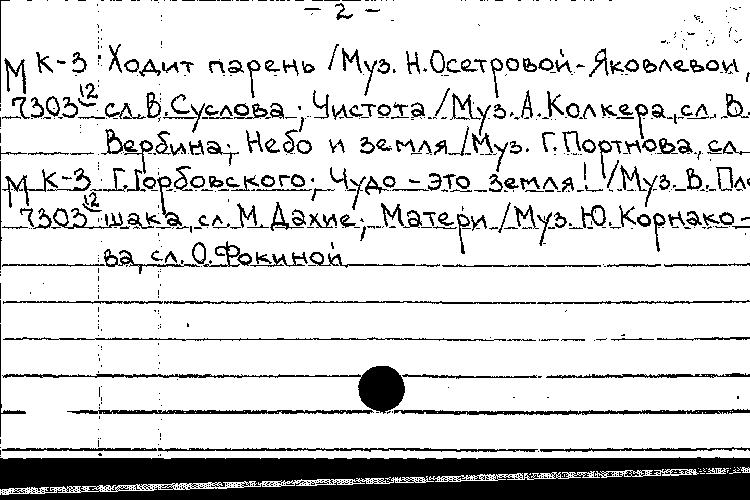 - 2 -
М К-3 Ходит парень /Муз. Н.Осетровой-Яковлевой,
7303 12 сл.В.Суслова; Чистота /Муз. А.Колкера, сл. В.
Вербина; Небо и земля /Муз. Г.Портнова, сл.
М К-3 Г.Горбовского; Чудо - это земля! /Муз. В.Пле
7303 12 шака, сл. М.Дахие; Матери /Муз. Ю.Корнако-
ва, сл. О.Фокиной